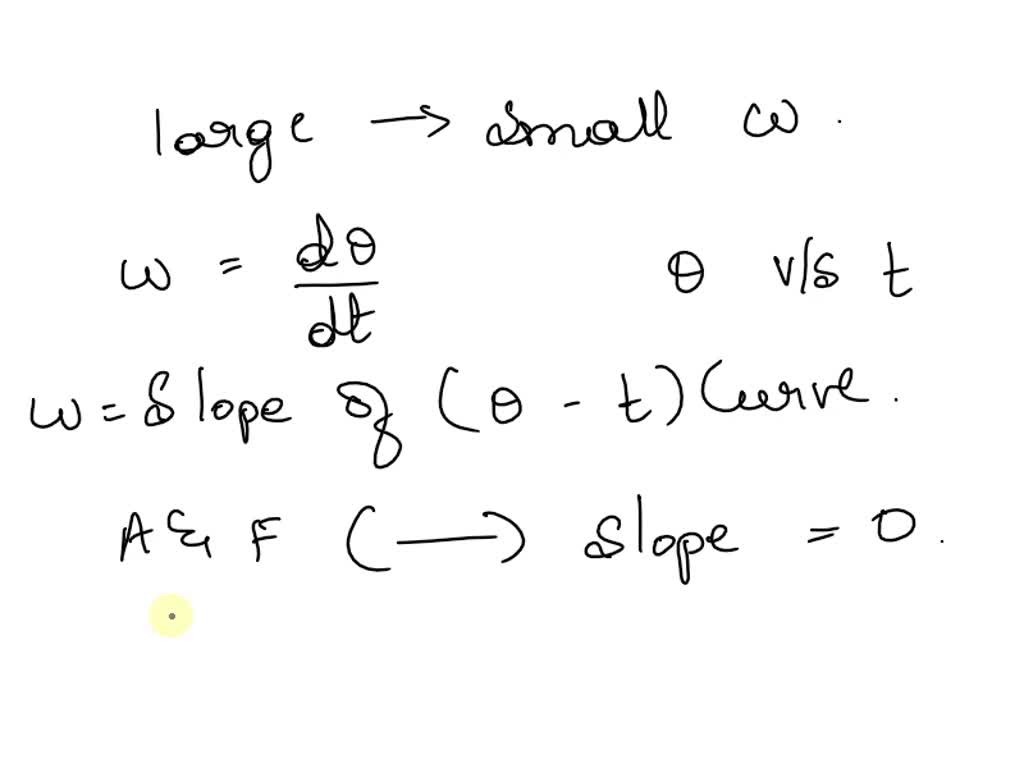 large → small ω.
ω = dθ/dt θ v/s t
ω = Slope of (θ - t) Curve.
A & F (—) slope = 0.